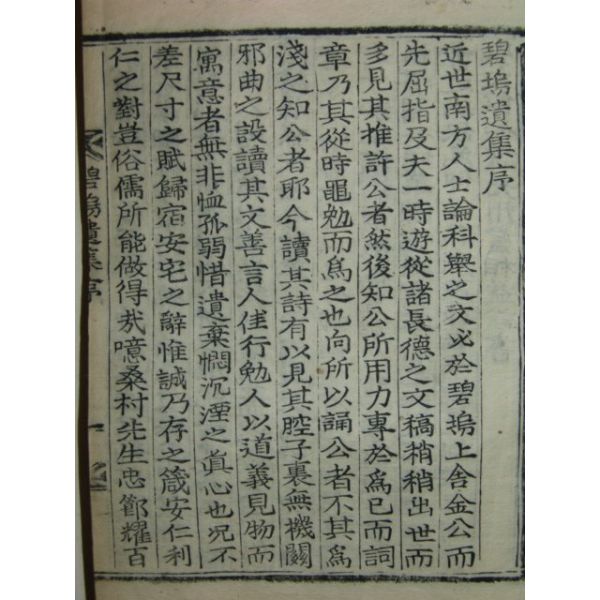 碧塢遺集序
近世南方人士論科舉之文必於碧塢上舍金公而
先屈指及夫一時遊從諸長德之文稿稍稍出世而
多見其推許公者然後知公所用力專於爲已而詞
章乃其從時黽勉而爲之也向所以誦公者不其爲
淺之知公者耶今讀其詩有以見其腔子裏無機關
邪曲之設讀其文善言人佳行勉人以道義見物而
寓意者無非恤孤弱惜遺棄憫沉湮之眞心也况不
差尺寸之賦歸宿安宅之辭惟誠乃存之箴安仁利
仁之對豈俗儒所能做得㢤噫桑村先生忠節耀百
碧塢遺集序
一